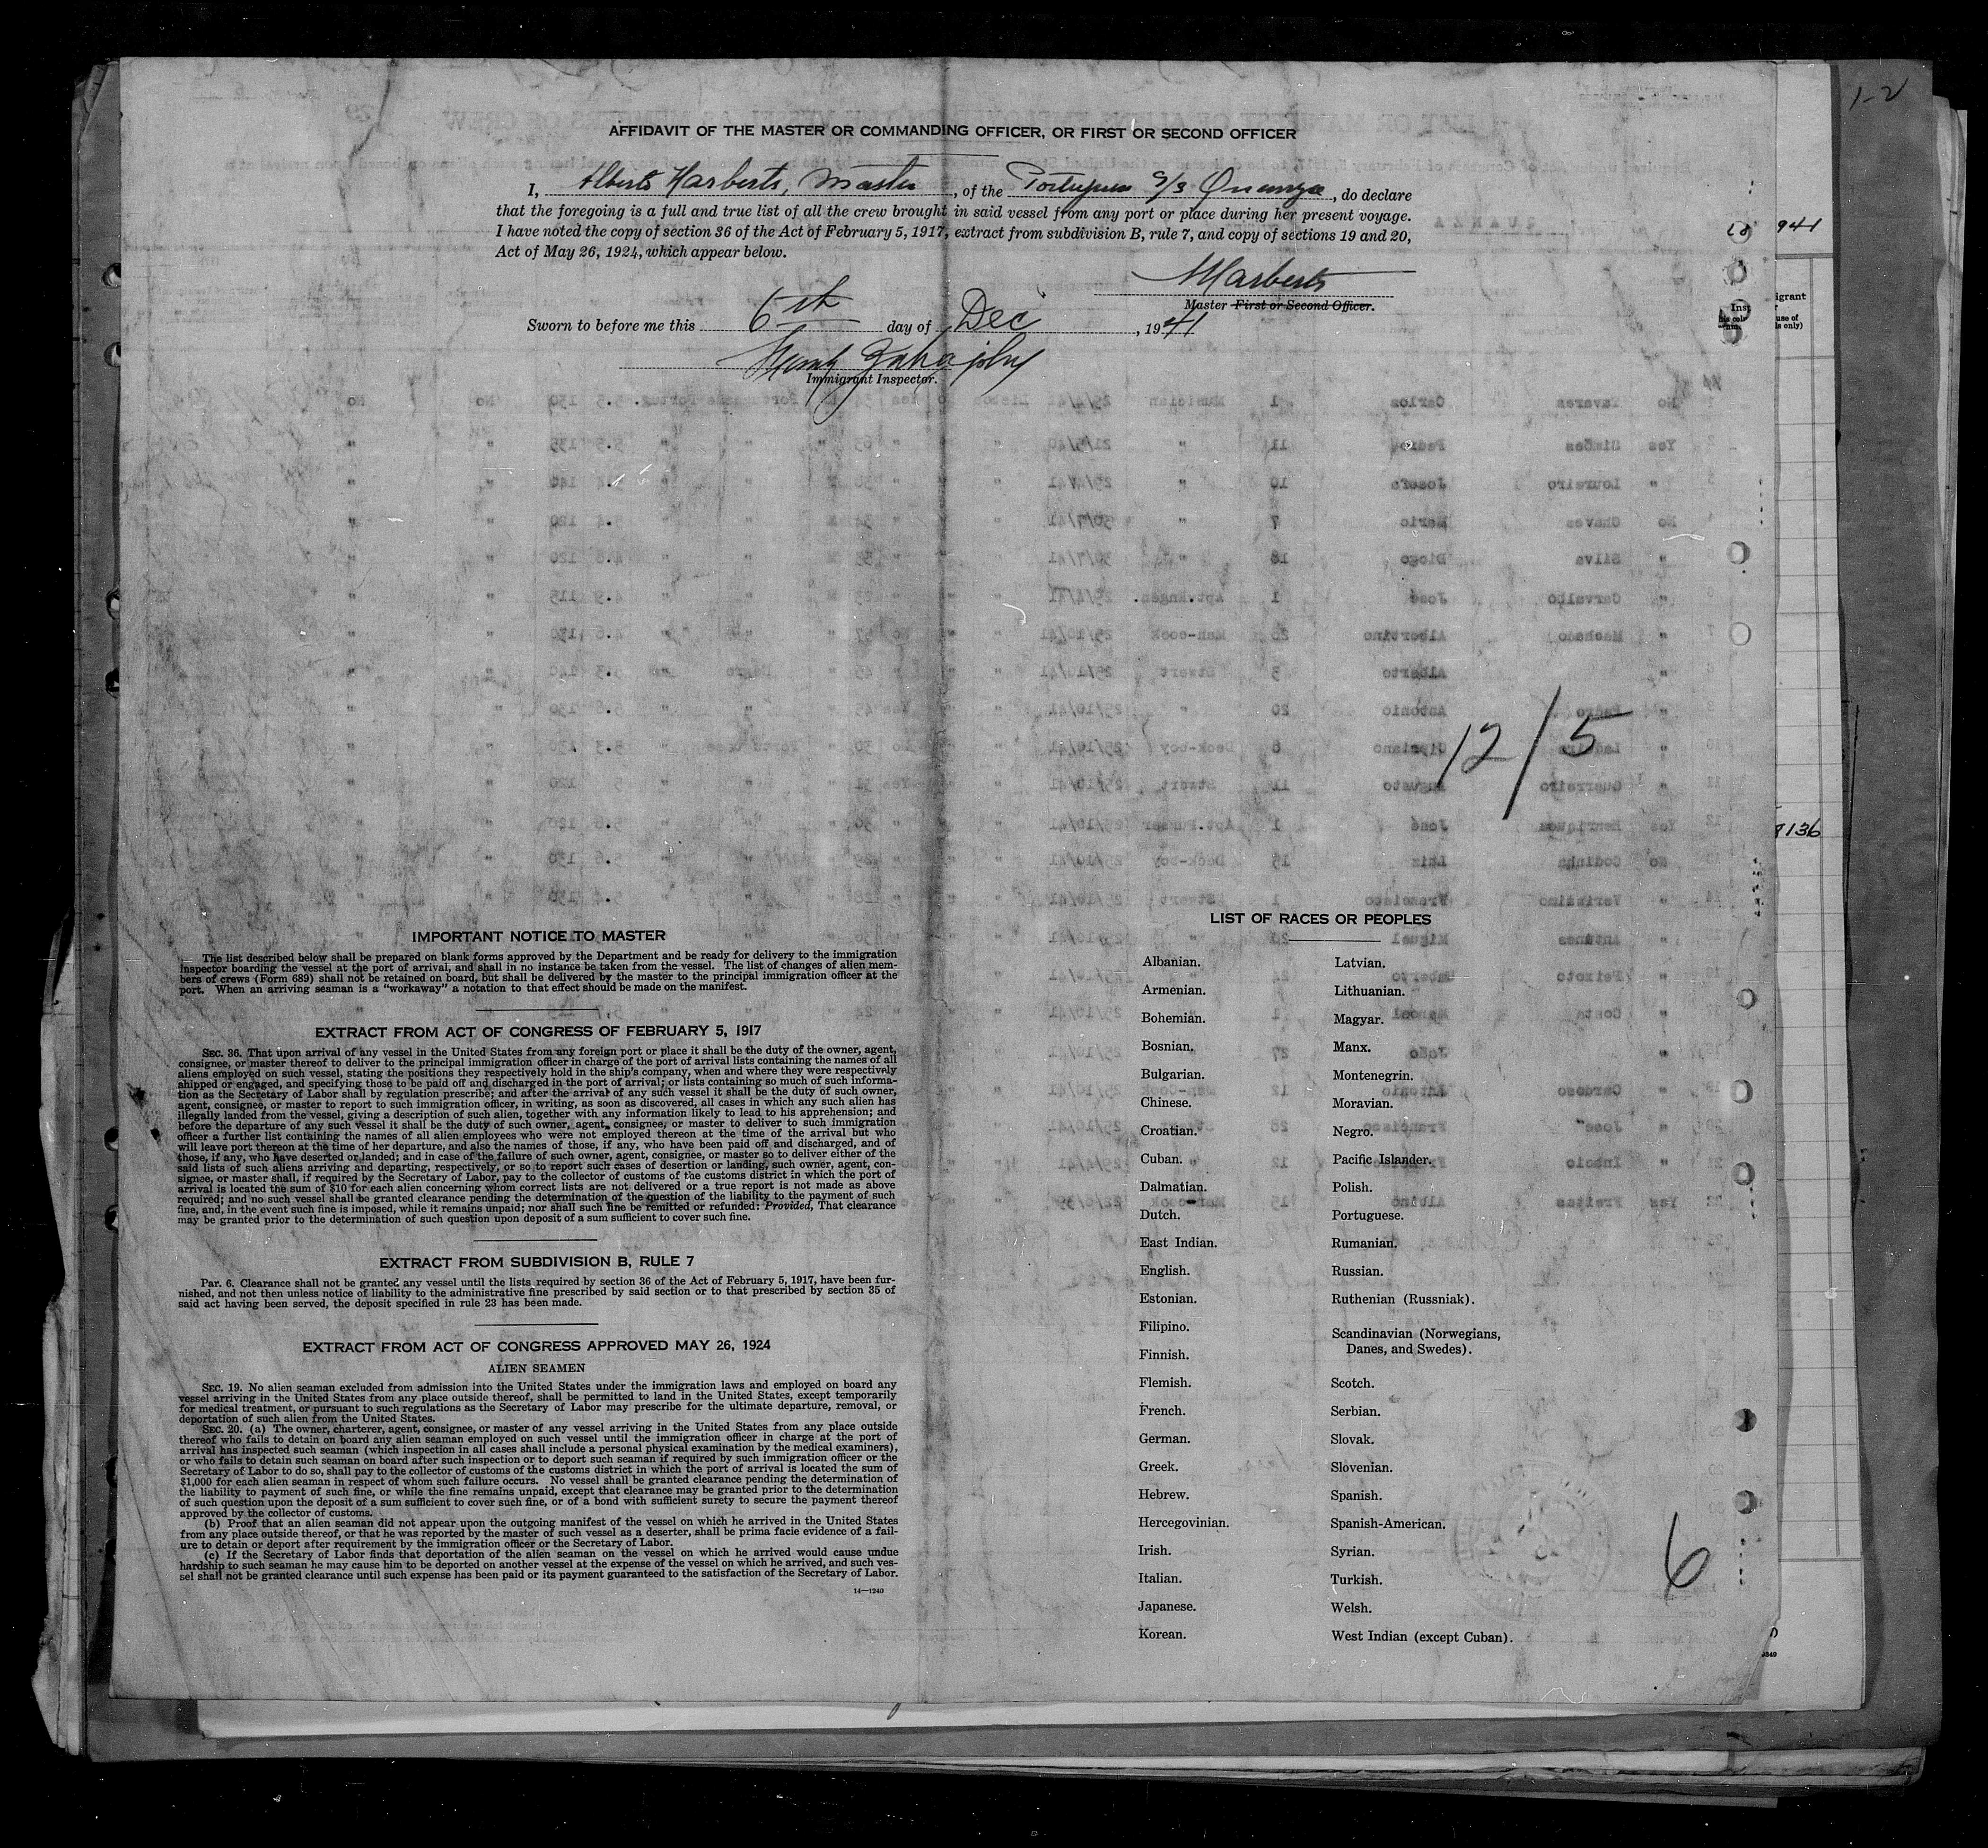 1-2
AFFIDAVIT OF THE MASTER OR COMMANDING OFFICER, OR FIRST OR SECOND OFFICER
I, Alberto Harberts, Master, of the Portuguese S/S Quanza, do declare
that the foregoing is a full and true list of all the crew brought in said vessel from any port or place during her present voyage.
I have noted the copy of section 36 of the Act of February 5, 1917, extract from subdivision B, rule 7, and copy of sections 19 and 20,
Act of May 26, 1924, which appear below.
AHarberts
Master First or Second Officer.
Sworn to before me this 6th day of Dec, 1941
Immigrant Inspector.
941
igrant
use of
ls only)
12/5
9136
IMPORTANT NOTICE TO MASTER
The list described below shall be prepared on blank forms approved by the Department and be ready for delivery to the immigration
inspector boarding the vessel at the port of arrival, and shall in no instance be taken from the vessel. The list of changes of alien mem-
bers of crews (Form 689) shall not be retained on board, but shall be delivered by the master to the principal immigration officer at the
port. When an arriving seaman is a "workaway" a notation to that effect should be made on the manifest.
EXTRACT FROM ACT OF CONGRESS OF FEBRUARY 5, 1917
SEC. 36. That upon arrival of any vessel in the United States from any foreign port or place it shall be the duty of the owner, agent,
consignee, or master thereof to deliver to the principal immigration officer in charge of the port of arrival lists containing the names of all
aliens employed on such vessel, stating the positions they respectively hold in the ship's company, when and where they were respectively
shipped or engaged, and specifying those to be paid off and discharged in the port of arrival; or lists containing so much of such informa-
tion as the Secretary of Labor shall by regulation prescribe; and after the arrival of any such vessel it shall be the duty of such owner,
agent, consignee, or master to report to such immigration officer, in writing, as soon as discovered, all cases in which any such alien has
illegally landed from the vessel, giving a description of such alien, together with any information likely to lead to his apprehension; and
before the departure of any such vessel it shall be the duty of such owner, agent, consignee, or master to deliver to such immigration
officer a further list containing the names of all alien employees who were not employed thereon at the time of the arrival but who
will leave port thereon at the time of her departure, and also the names of those, if any, who have been paid off and discharged, and of
those, if any, who have deserted or landed; and in case of the failure of such owner, agent, consignee, or master so to deliver either of the
said lists of such aliens arriving and departing, respectively, or so to report such cases of desertion or landing, such owner, agent, con-
signee, or master shall, if required by the Secretary of Labor, pay to the collector of customs of the customs district in which the port of
arrival is located the sum of $10 for each alien concerning whom correct lists are not delivered or a true report is not made as above
required; and no such vessel shall be granted clearance pending the determination of the question of the liability to the payment of such
fine, and, in the event such fine is imposed, while it remains unpaid; nor shall such fine be remitted or refunded: Provided, That clearance
may be granted prior to the determination of such question upon deposit of a sum sufficient to cover such fine.
EXTRACT FROM SUBDIVISION B, RULE 7
PAR. 6. Clearance shall not be granted any vessel until the lists required by section 36 of the Act of February 5, 1917, have been fur-
nished, and not then unless notice of liability to the administrative fine prescribed by said section or to that prescribed by section 35 of
said act having been served, the deposit specified in rule 23 has been made.
EXTRACT FROM ACT OF CONGRESS APPROVED MAY 26, 1924
ALIEN SEAMEN
SEC. 19. No alien seaman excluded from admission into the United States under the immigration laws and employed on board any
vessel arriving in the United States from any place outside thereof, shall be permitted to land in the United States, except temporarily
for medical treatment, or pursuant to such regulations as the Secretary of Labor may prescribe for the ultimate departure, removal, or
deportation of such alien from the United States.
SEC. 20. (a) The owner, charterer, agent, consignee, or master of any vessel arriving in the United States from any place outside
thereof who fails to detain on board any alien seaman employed on such vessel until the immigration officer in charge at the port of
arrival has inspected such seaman (which inspection in all cases shall include a personal physical examination by the medical examiners),
or who fails to detain such seaman on board after such inspection or to deport such seaman if required by such immigration officer or the
Secretary of Labor to do so, shall pay to the collector of customs of the customs district in which the port of arrival is located the sum of
$1,000 for each alien seaman in respect of whom such failure occurs. No vessel shall be granted clearance pending the determination of
the liability to payment of such fine, or while the fine remains unpaid, except that clearance may be granted prior to the determination
of such question upon the deposit of a sum sufficient to cover such fine, or of a bond with sufficient surety to secure the payment thereof
approved by the collector of customs.
(b) Proof that an alien seaman did not appear upon the outgoing manifest of the vessel on which he arrived in the United States
from any place outside thereof, or that he was reported by the master of such vessel as a deserter, shall be prima facie evidence of a fail-
ure to detain or deport after requirement by the immigration officer or the Secretary of Labor.
(c) If the Secretary of Labor finds that deportation of the alien seaman on the vessel on which he arrived would cause undue
hardship to such seaman he may cause him to be deported on another vessel at the expense of the vessel on which he arrived, and such ves-
sel shall not be granted clearance until such expense has been paid or its payment guaranteed to the satisfaction of the Secretary of Labor.
14—1240
LIST OF RACES OR PEOPLES
Albanian.
Armenian.
Bohemian.
Bosnian.
Bulgarian.
Chinese.
Croatian.
Cuban.
Dalmatian.
Dutch.
East Indian.
English.
Estonian.
Filipino.
Finnish.
Flemish.
French.
German.
Greek.
Hebrew.
Hercegovinian.
Irish.
Italian.
Japanese.
Korean.
Latvian.
Lithuanian.
Magyar.
Manx.
Montenegrin.
Moravian.
Negro.
Pacific Islander.
Polish.
Portuguese.
Rumanian.
Russian.
Ruthenian (Russniak).
Scandinavian (Norwegians,
Danes, and Swedes).
Scotch.
Serbian.
Slovak.
Slovenian.
Spanish.
Spanish-American.
Syrian.
Turkish.
Welsh.
West Indian (except Cuban).
6